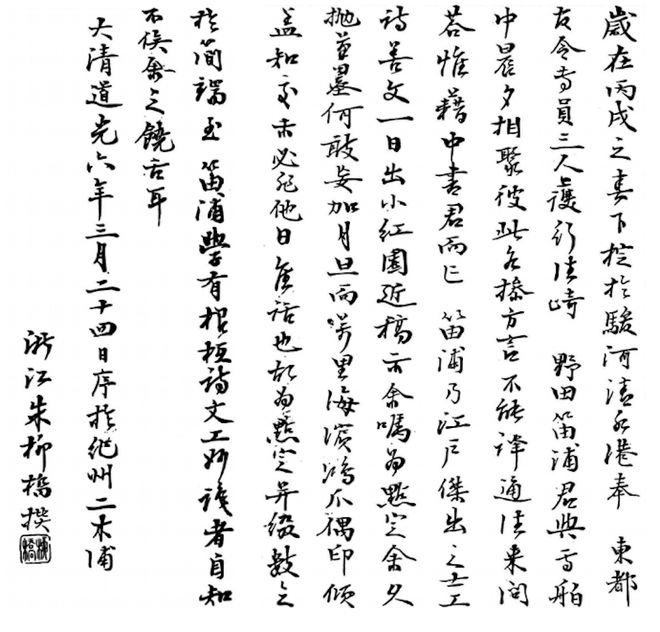 歲在丙戌之春下椗於駿河清水港奉 東都
令專員三人護行往崎 野田笛浦君與焉舶
中晨夕相聚彼此各操方言不能譯通往來問
答惟藉中書君而已 笛浦乃江戶傑出之士工
詩善文一日出小紅園近稿示余囑為點定余久
拋筆墨何敢妄加月旦而萬里海濱鴻爪偶印傾
蓋知交未必非他日佳話也故為點定并綴數言
於簡端至笛浦學有根柢詩文工妙識者自知
不俟余之饒舌耳
大清道光六年三月二十四日序於紀州二木浦
浙江朱柳橋撰